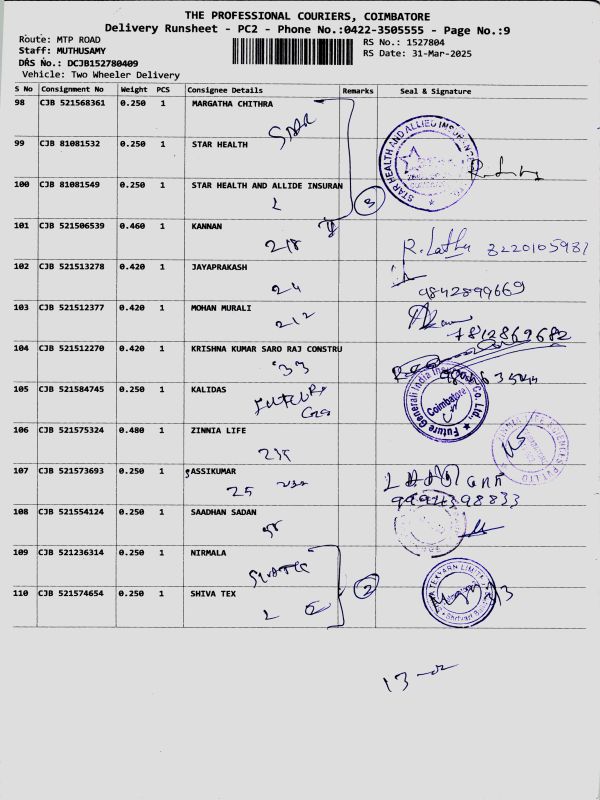 THE PROFESSIONAL COURIERS, COIMBATORE
Delivery Runsheet - PC2 - Phone No.:0422-3505555 - Page No.:9
Route: MTP ROAD
RS No.: 1527804
Staff: MUTHUSAMY
RS Date: 31-Mar-2025
DRS No.: DCJB152780409
Vehicle: Two Wheeler Delivery
S No Consignment No Weight PCS Consignee Details Remarks Seal & Signature
98 CJB 521568361 0.250 1 MARGATHA CHITHRA
STAR
99 CJB 81081532 0.250 1 STAR HEALTH
STAR HEALTH AND ALLIED INSURANCE
100 CJB 81081549 0.250 1 STAR HEALTH AND ALLIDE INSURAN
3
101 CJB 521506539 0.460 1 KANNAN
218
R. Latha 8220105987
102 CJB 521513278 0.420 1 JAYAPRAKASH
24
9842899669
103 CJB 521512377 0.420 1 MOHAN MURALI
212
7812869682
104 CJB 521512270 0.420 1 KRISHNA KUMAR SARO RAJ CONSTRU
33
105 CJB 521584745 0.250 1 KALIDAS
Future Generali India Insurance Co. Ltd.,
Coimbatore
106 CJB 521575324 0.480 1 ZINNIA LIFE
107 CJB 521573693 0.250 1 SASSIKUMAR
25
108 CJB 521554124 0.250 1 SAADHAN SADAN
109 CJB 521236314 0.250 1 NIRMALA
110 CJB 521574654 0.250 1 SHIVA TEX
2
13